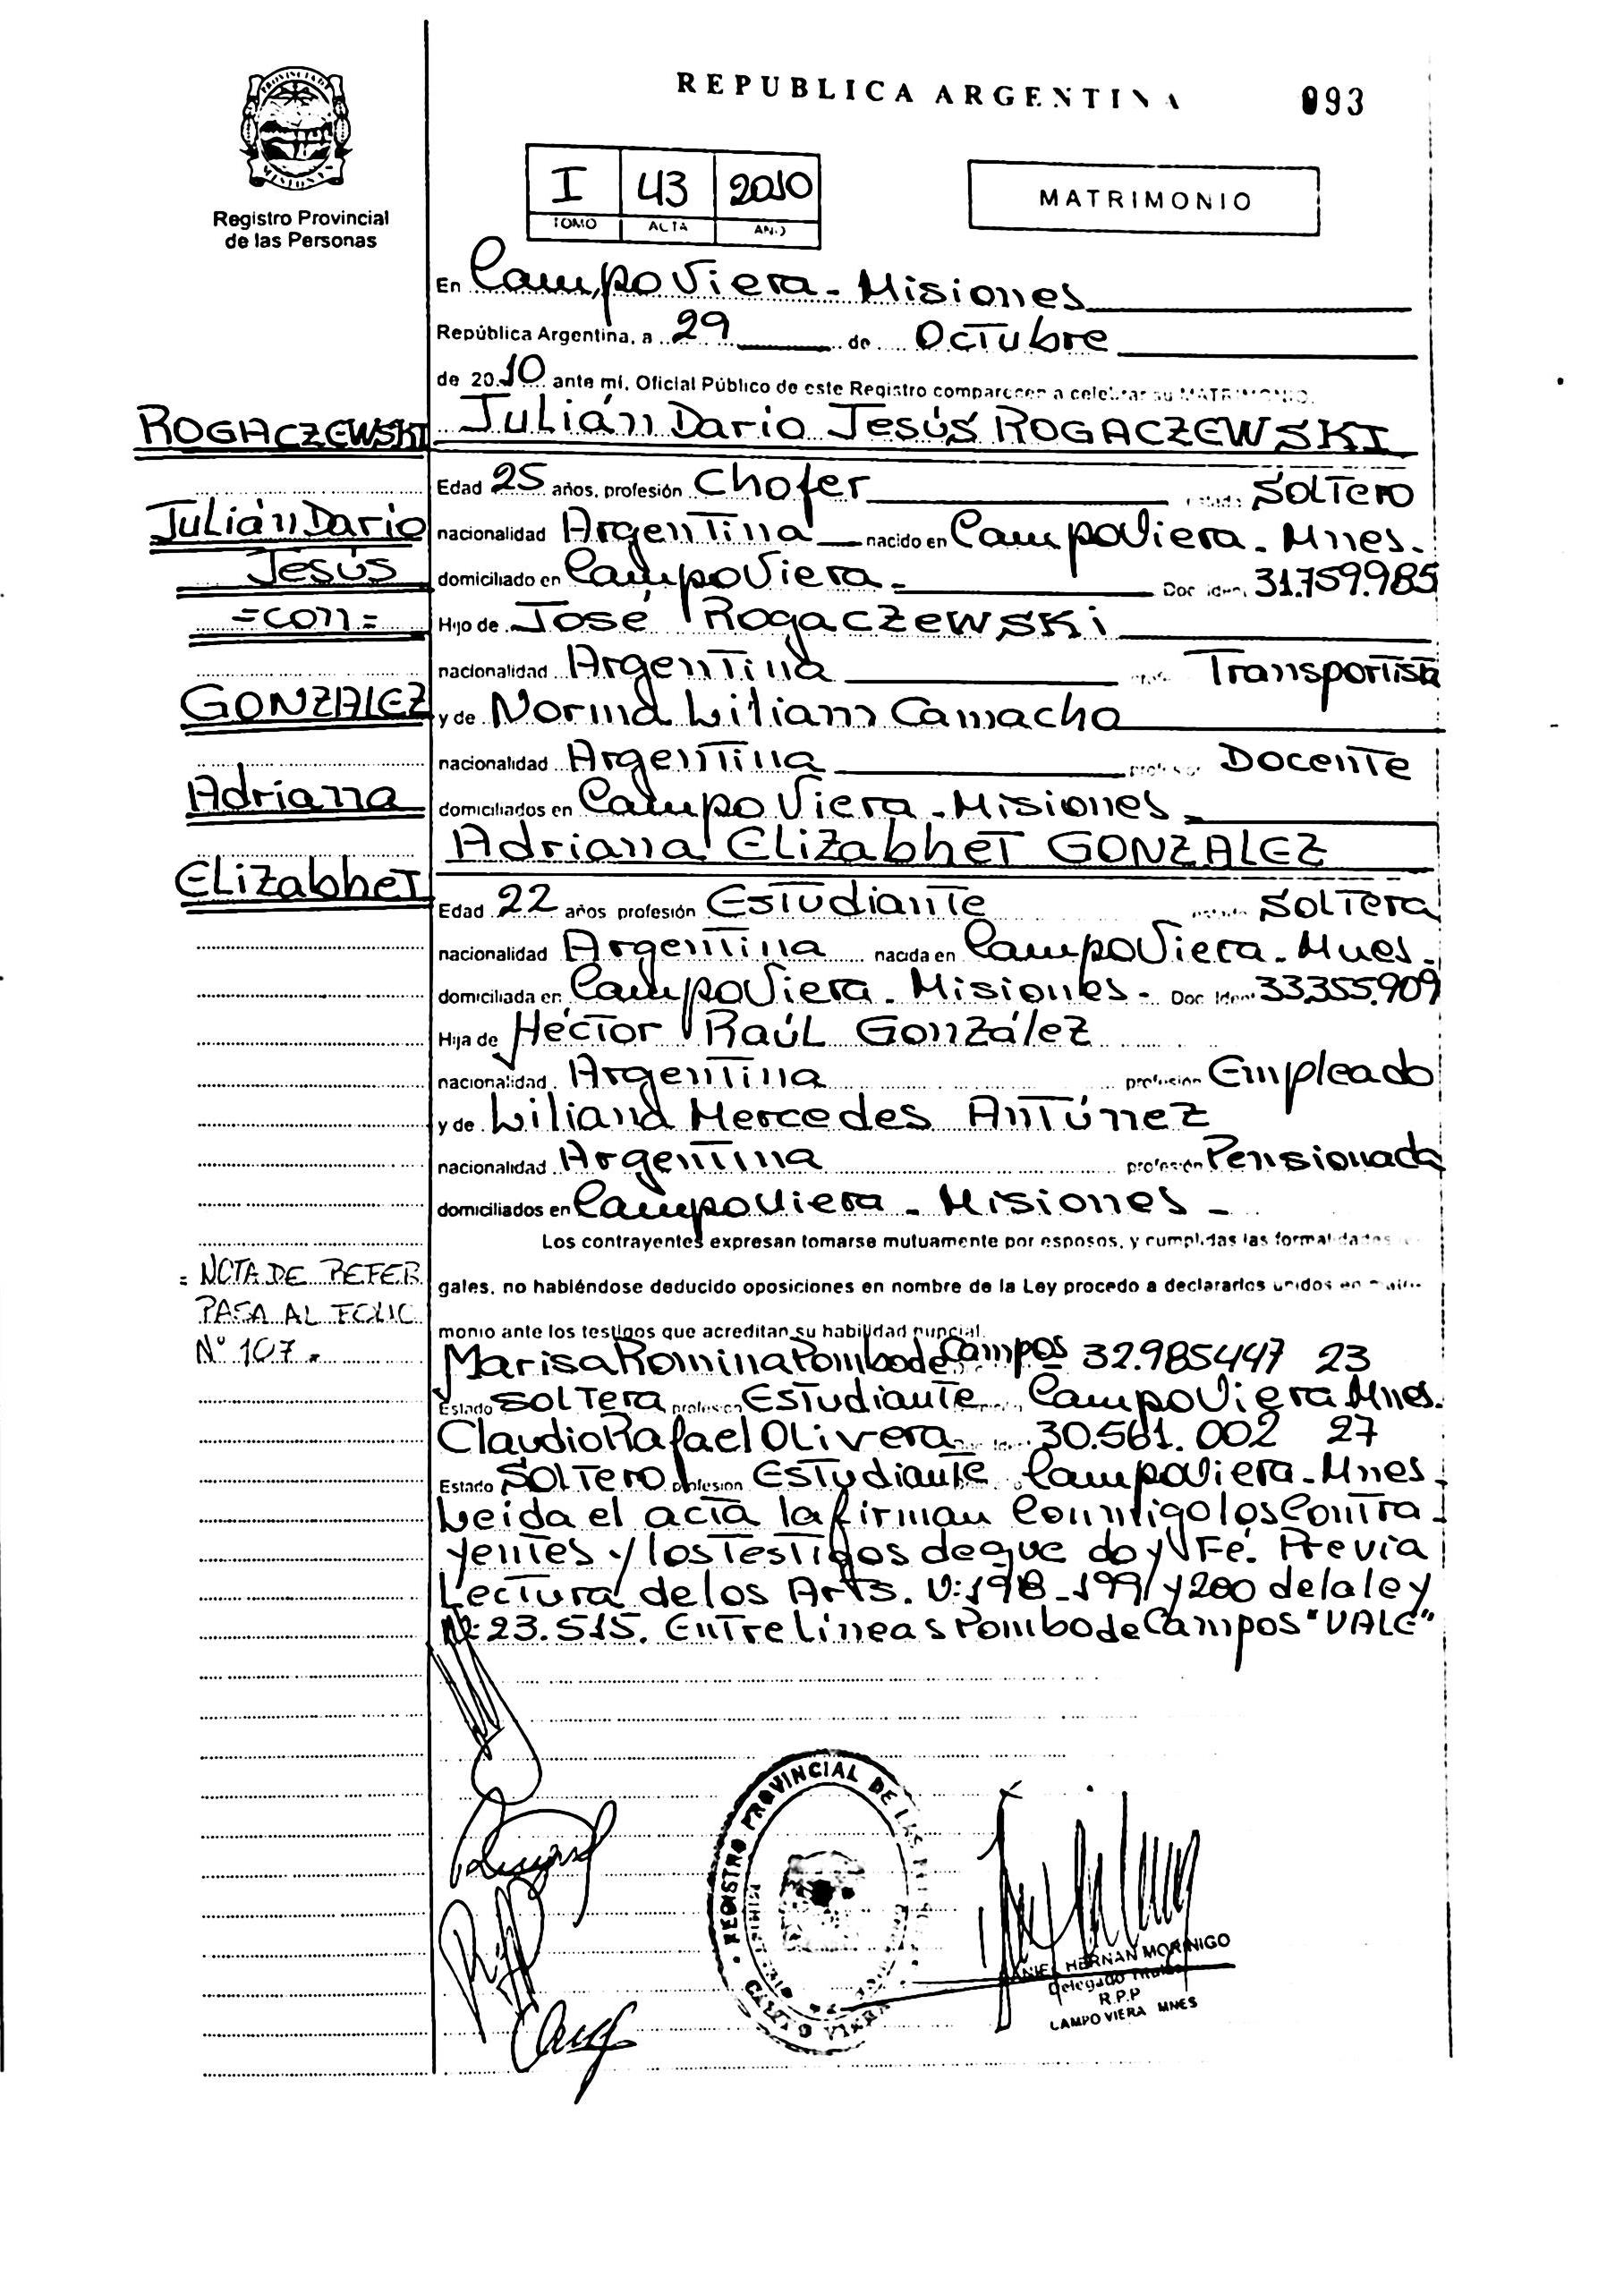 REPUBLICA ARGENTINA
093
PROVINCIA DE
MISIONES
Registro Provincial
de las Personas
I 43 2010
TOMO ACTA AÑO
MATRIMONIO
En Campo Viera - Misiones
República Argentina, a 29 de Octubre
de 2010 ante mí, Oficial Público de este Registro comparecen a celebrar su MATRIMONIO.
ROGACZEWSKI
Julián Dario Jesús ROGACZEWSKI
Edad 25 años, profesión Chofer estado Soltero
Julián Dario
nacionalidad Argentina nacido en Campo Viera - Mnes.
Jesús
domiciliado en Campo Viera - Doc. Iden. 31.759.985
=con=
Hijo de José Rogaczewski
nacionalidad Argentina Transportista
GONZALEZ
y de Norma Liliam Camacho
nacionalidad Argentina profesión Docente
Adriana
domiciliados en Campo Viera - Misiones -
Adriana Elizabhet GONZALEZ
Elizabhet
Edad 22 años profesión Estudiante estado Soltera
nacionalidad Argentina nacida en Campo Viera - Mnes.
domiciliada en Campo Viera - Misiones - Doc. Iden. 33.355.909
Hija de Héctor Raúl González
nacionalidad Argentina profesión Empleado
y de Liliana Mercedes Antúnez
nacionalidad Argentina profesión Pensionada
domiciliados en Campo Viera - Misiones -
Los contrayentes expresan tomarse mutuamente por esposos, y cumplidas las formalidades
= NOTA DE REFER
gales, no habiéndose deducido oposiciones en nombre de la Ley procedo a declararlos unidos en matri-
PASA AL FOLIO
monio ante los testigos que acreditan su habilidad nupcial.
N° 107 =
Marisa Romina Pombo de Campos 32.985447 23
Estado Soltera profesión Estudiante Campo Viera Mnes.
Claudio Rafael Olivera 30.561.002 27
Estado Soltero profesión Estudiante Campo Viera - Mnes.
Leida el acta la firman Conmigo los Contra-
yentes y los Testigos de que doy Fé. Previa
Lectura de los Arts. N: 198 - 199 y 200 de la ley
N: 23.515. Entre líneas Pombo de Campos "VALE"
REGISTRO PROVINCIAL DE LAS
CAMPO VIERA
DANIEL HERNAN MORINIGO
Delegado Titular
R.P.P
CAMPO VIERA MNES